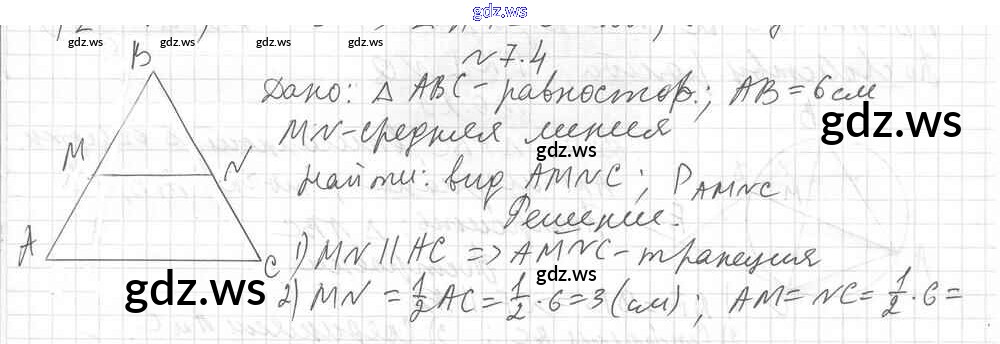 gdz.ws
gdz.ws gdz.ws gdz.ws gdz.ws gdz.ws
№ 7.4
B
Дано: △ ABC - равностор.; AB = 6 см
gdz.ws
MN - средняя линия
gdz.ws
M N
Найти: вид AMNC; P AMNC
Решение.
A C
1) MN || AC => AMNC - трапеция
gdz.ws gdz.ws gdz.ws
2) MN = 1/2 AC = 1/2 · 6 = 3 (см); AM = NC = 1/2 · 6 =